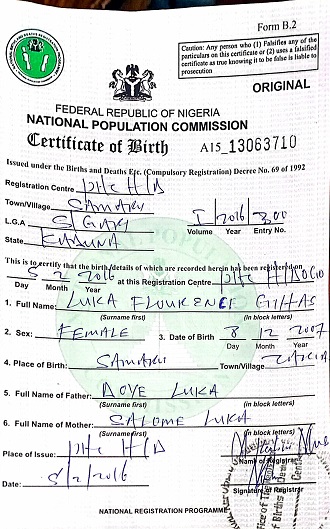 Form B.2
Caution: Any person who (1) Falsifies any of the
particulars on this certificate or (2) uses a falsified
certificate as true knowing it to be false is liable to
prosecution
ORIGINAL
FEDERAL REPUBLIC OF NIGERIA
NATIONAL POPULATION COMMISSION
Certificate of Birth A15 13063710
Issued under the Births and Deaths Etc. (Compulsory Registration) Decree No. 69 of 1992
Registration Centre PHC
Town/Village SAMARU
L.G.A S/GARI I 2016 300
Volume Year Entry No.
State KADUNA
This is to certify that the birth/details of which are recorded herein has been registered on
8 2 2016 at this Registration Centre PHC
Day Month Year
1. Full Name: LUKA
(Surname first) (in block letters)
2. Sex: FEMALE 3. Date of Birth 8 12 2007
Day Month Year
4. Place of Birth: SAMARU Town/Village ZARIA
5. Full Name of Father: DOYE LUKA
(Surname first) (in block letters)
6. Full Name of Mother: SALOME LUKA
(Surname first) (in block letters)
Place of Issue: PHC
Name of Registrar
Date: 8/2/2016
Signature of Registrar
NATIONAL REGISTRATION PROGRAMME